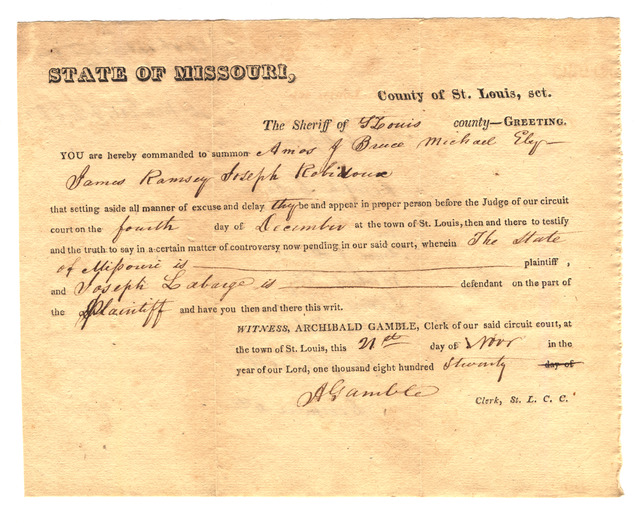 STATE OF MISSOURI,
County of St. Louis, sct.
The Sheriff of St Louis county—GREETING.
YOU are hereby commanded to summon Amos J Bruce Michael Eley
James Ramsey Joseph Robidoux
that setting aside all manner of excuse and delay they be and appear in proper person before the Judge of our circuit
court on the fourth day of December at the town of St. Louis, then and there to testify
and the truth to say in a certain matter of controversy now pending in our said court, wherein The State
of Missouri is plaintiff,
and Joseph Labarge is defendant on the part of
the Plaintiff and have you then and there this writ.
WITNESS, ARCHIBALD GAMBLE, Clerk of our said circuit court, at
the town of St. Louis, this 21st day of Novr in the
year of our Lord, one thousand eight hundred & twenty day of
A Gamble Clerk, St. L. C. C.